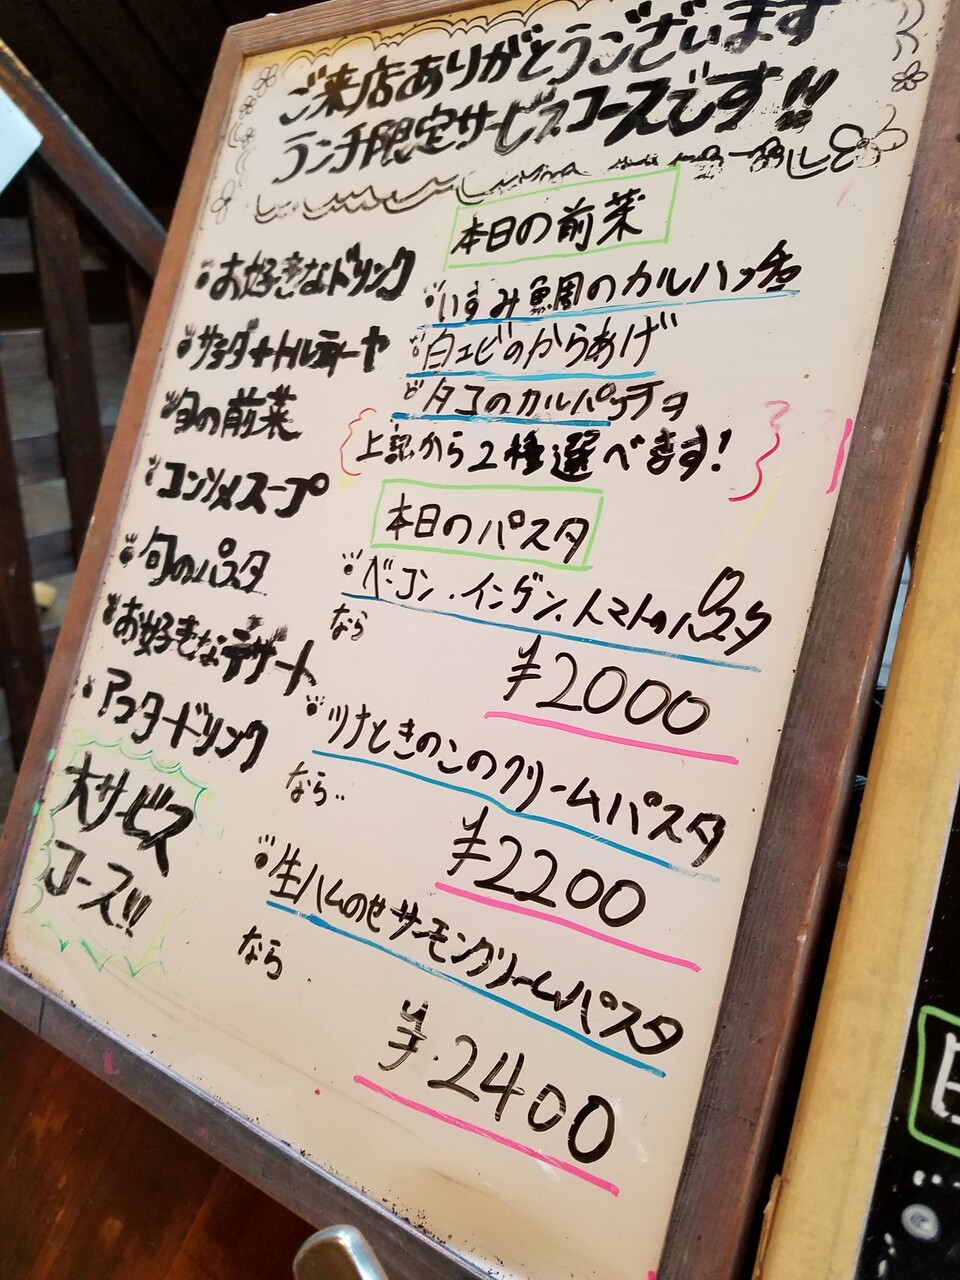 ご来店ありがとうございます
ランチ限定サービスコースです!!
お好きなドリンク
サラダ+トルティーヤ
旬の前菜
コンソメスープ
旬のパスタ
お好きなデザート
アフタードリンク
大サービス
コース!!
本日の前菜
いすみ鯛のカルパッチョ
白エビのからあげ
タコのカルパッチョ
上記から2種選べます!
本日のパスタ
ベーコン、インゲン、トマトのパスタ
なら
¥2000
ツナときのこのクリームパスタ
なら..
¥2200
生ハムのせサーモンクリームパスタ
なら..
¥2400